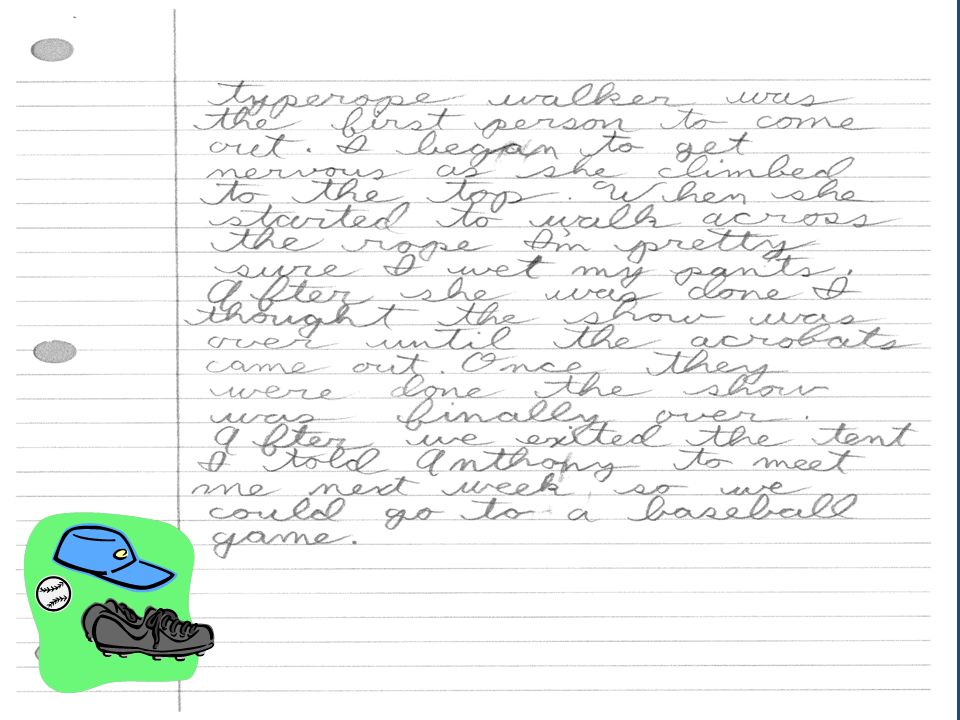 typerope walker was
the first person to come
out. I began to get
nervous as she climbed
to the top. When she
started to walk across
the rope I'm pretty
sure I wet my pants.
After she was done I
thought the show was
over until the acrobats
came out. Once they
were done the show
was finally over.
After we exited the tent
I told Anthony to meet
me next week so we
could go to a baseball
game.